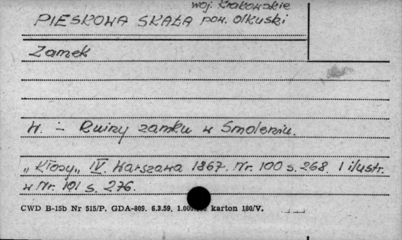 woj. Krakowskie
PIESKOWA SKAŁA pow. olkuski
Zamek
W. - Ruiny zamku w Smoleniu.
"Kłosy" IV. Warszawa 1867. Nr. 100 s. 268. 1 ilustr.
w Nr. 101 s. 276.
CWD B-15b Nr 515/P. GDA-809. 6.3.59. karton 180/V.